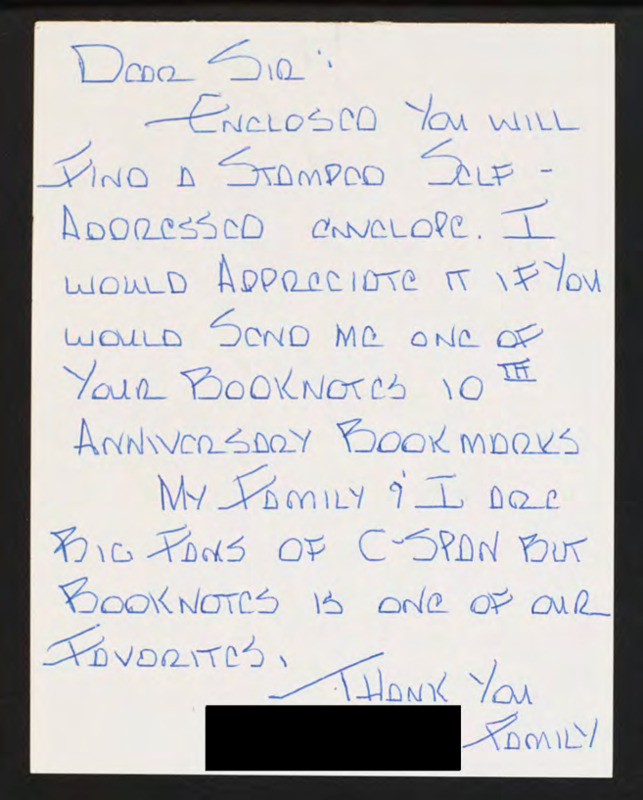 Dear Sir:
Enclosed You will
Find a Stamped Self-
Addressed envelope. I
would Appreciate it if You
would Send me one of
Your Booknotes 10TH
Anniversary Bookmarks
My Family & I are
Big Fans of C-SPAN But
Booknotes is one of our
Favorites.
Thank You
Family